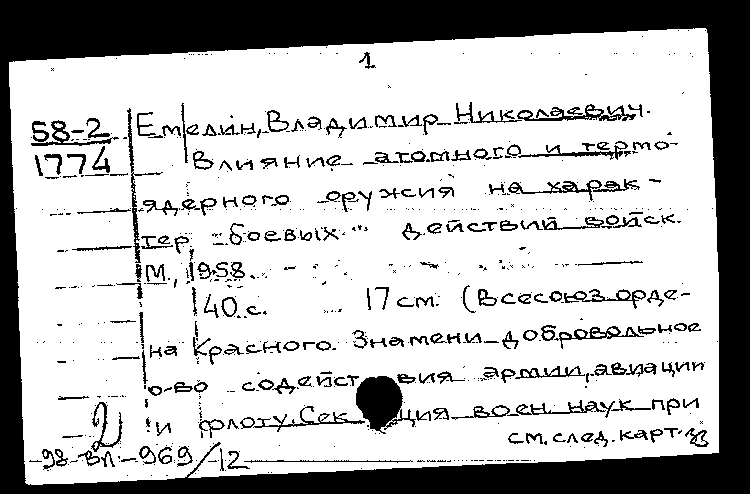 1
58-2
1774
Емелин, Владимир Николаевич.
Влияние атомного и термо-
ядерного оружия на харак-
тер боевых действий войск.
М., 1958.
40 с. 17 см. (Всесоюз. орде-
на Красного Знамени добровольное
о-во содействия армии, авиации
и флоту. Секция воен. наук при
см. след. карт.
2
98-ВЛ-969/12